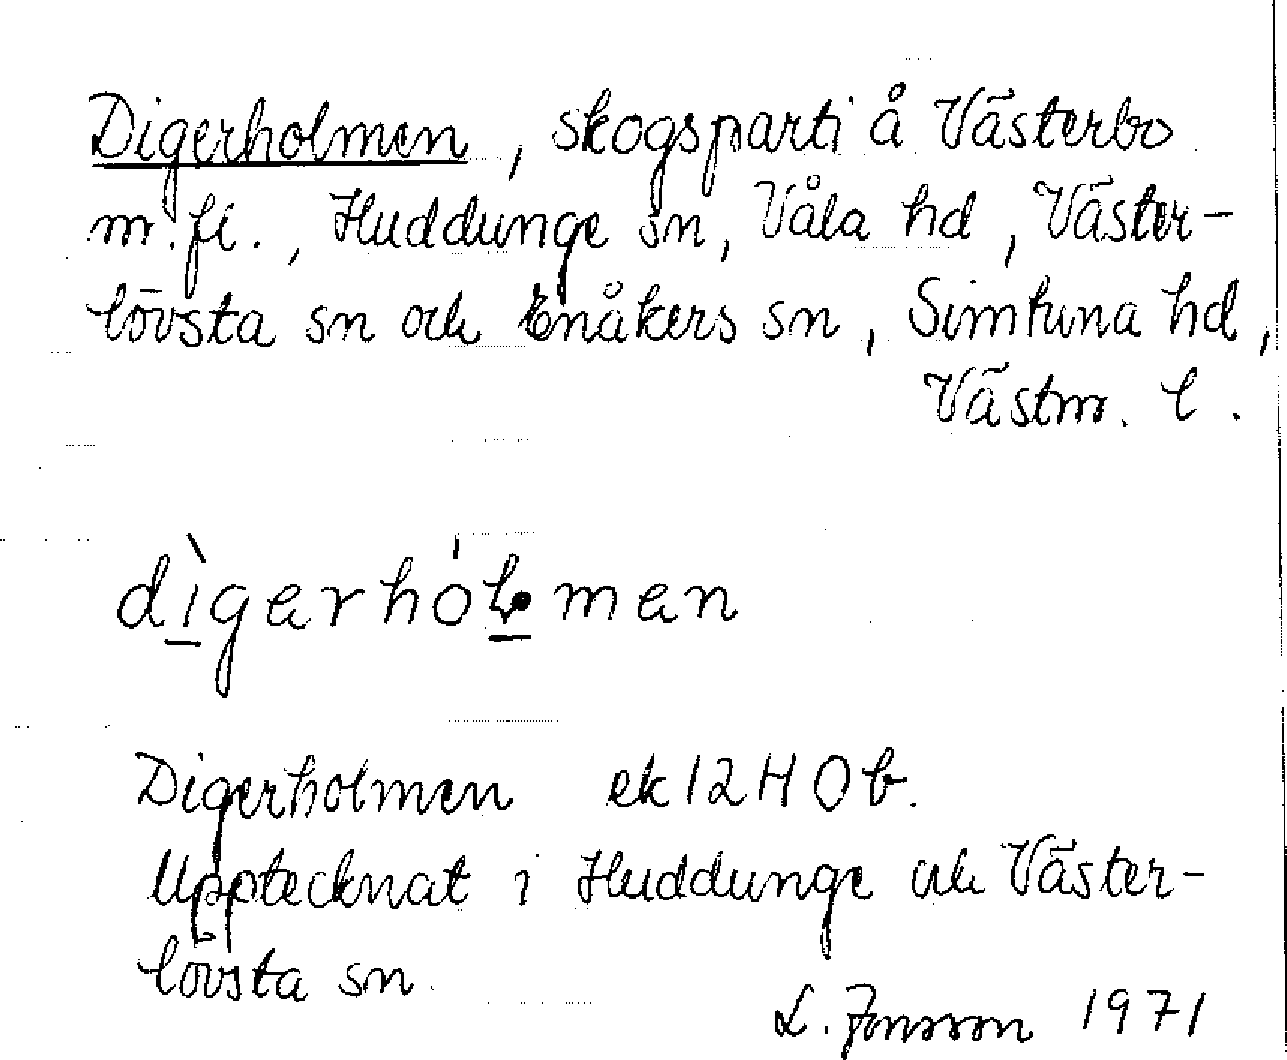 Digerholmen, skogsparti å Västerbo
m. fl., Huddunge sn, Våla hd, Väster-
lövsta sn och Enåkers sn, Simtuna hd,
Västm. l.
dìgerhóḷmen
Digerholmen ek 12H 0b.
Upptecknat i Huddunge och Väster-
lövsta sn.
L. Jonsson 1971